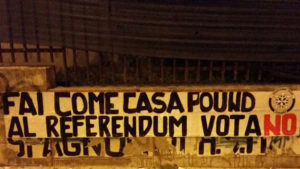 FAI COME CASA POUND
AL REFERENDUM VOTA NO